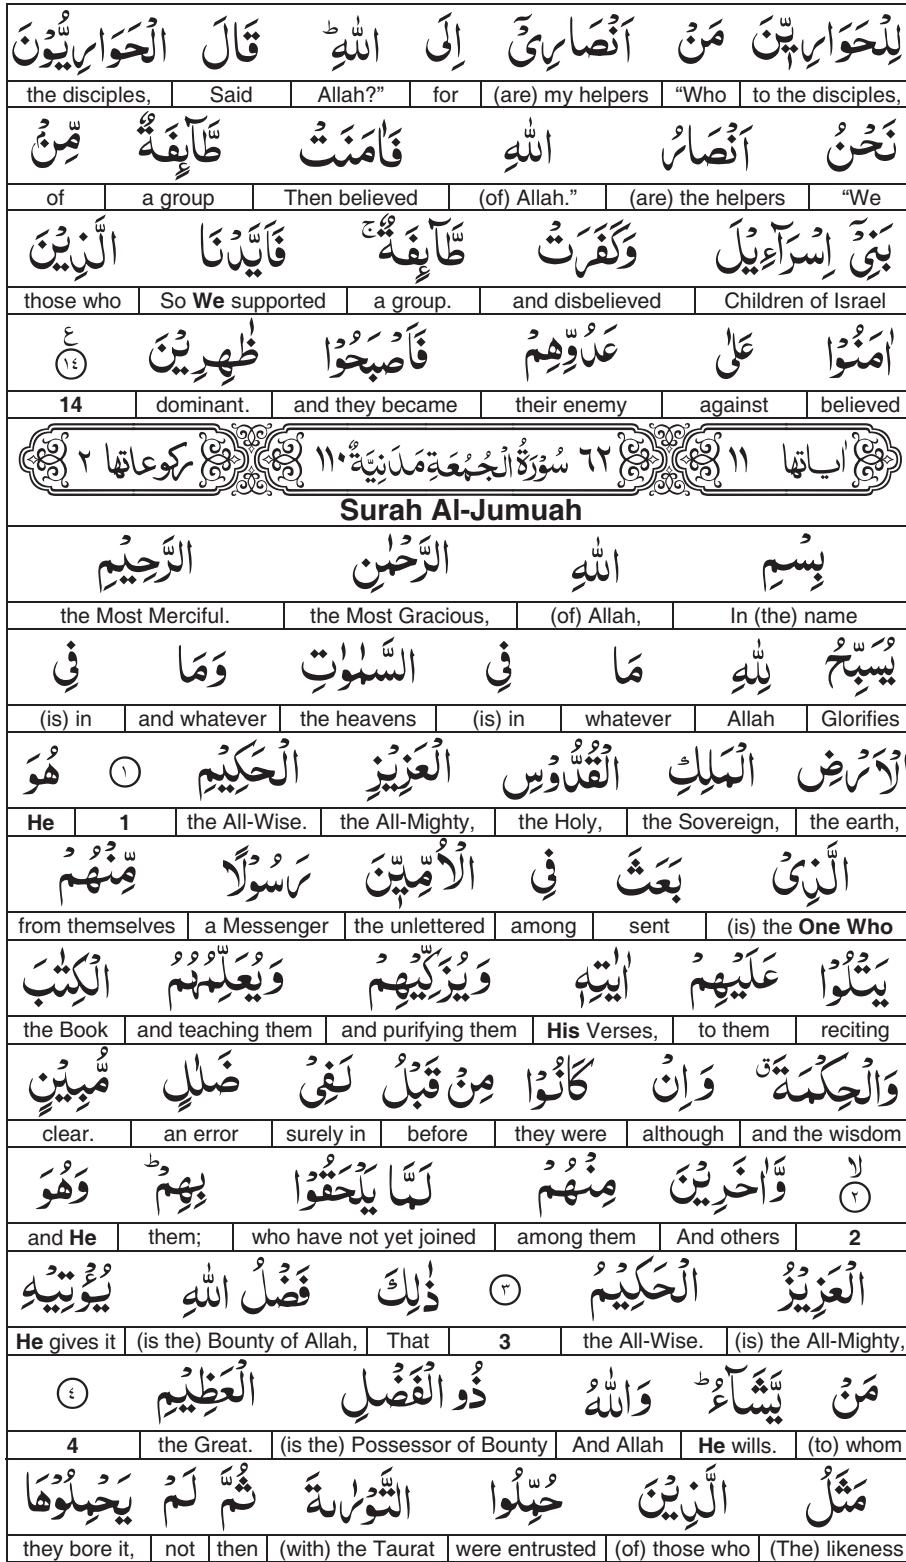 لِلْحَوَارِيّٖنَ مَنْ اَنْصَارِيْۤ اِلَى اللّٰهِؕ قَالَ الْحَوَارِيُّوْنَ
to the disciples, “Who (are) my helpers for Allah?” Said the disciples,
نَحْنُ اَنْصَارُ اللّٰهِ فَاٰمَنَتْ طَّآئِفَةٌ مِّنْۢ
“We (are) the helpers (of) Allah.” Then believed a group of
بَنِيْۤ اِسْرَآءِيْلَ وَكَفَرَتْ طَّآئِفَةٌۚ فَاَيَّدْنَا الَّذِيْنَ
Children of Israel and disbelieved a group. So We supported those who
اٰمَنُوْا عَلٰى عَدُوِّهِمْ فَاَصْبَحُوْا ظٰهِرِيْنَ ۱۴ ع
believed against their enemy and they became dominant. 14
اٰياتها ۱۱ ۶۲ سُوْرَةُ الْجُمُعَةِ مَدَنِيَّةٌ ۱۱۰ ركوعاتها ۲
Surah Al-Jumuah
بِسْمِ اللّٰهِ الرَّحْمٰنِ الرَّحِيْمِ
In (the) name (of) Allah, the Most Gracious, the Most Merciful.
يُسَبِّحُ لِلّٰهِ مَا فِي السَّمٰوٰتِ وَمَا فِي
Glorifies Allah whatever (is) in the heavens and whatever (is) in
الْاَرْضِ الْمَلِكِ الْقُدُّوْسِ الْعَزِيْزِ الْحَكِيْمِ ۱ هُوَ
the earth, the Sovereign, the Holy, the All-Mighty, the All-Wise. 1 He
الَّذِيْ بَعَثَ فِي الْاُمِّيّٖنَ رَسُوْلًا مِّنْهُمْ
(is) the One Who sent among the unlettered a Messenger from themselves
يَتْلُوْا عَلَيْهِمْ اٰيٰتِهٖ وَيُزَكِّيْهِمْ وَيُعَلِّمُهُمُ الْكِتٰبَ
reciting to them His Verses, and purifying them and teaching them the Book
وَالْحِكْمَةَۗ وَاِنْ كَانُوْا مِنْ قَبْلُ لَفِيْ ضَلٰلٍ مُّبِيْنٍ
and the wisdom although they were before surely in an error clear.
۲ۙ وَّاٰخَرِيْنَ مِنْهُمْ لَمَّا يَلْحَقُوْا بِهِمْؕ وَهُوَ
2 And others among them who have not yet joined them; and He
الْعَزِيْزُ الْحَكِيْمُ ۳ ذٰلِكَ فَضْلُ اللّٰهِ يُؤْتِيْهِ
(is) the All-Mighty, the All-Wise. 3 That (is the) Bounty of Allah, He gives it
مَنْ يَّشَآءُؕ وَاللّٰهُ ذُو الْفَضْلِ الْعَظِيْمِ ۴
(to) whom He wills. And Allah (is the) Possessor of Bounty the Great. 4
مَثَلُ الَّذِيْنَ حُمِّلُوا التَّوْرٰىةَ ثُمَّ لَمْ يَحْمِلُوْهَا
(The) likeness (of) those who were entrusted (with) the Taurat then not they bore it,